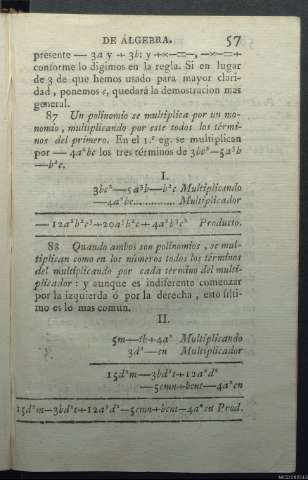 DE ÁLGEBRA. 57
presente — 3a y + 3b: y +×—=—, —×—=+
conforme lo digimos en la regla. Si en lugar
de 3 de que hemos usado para mayor clari-
dad, ponemos c, quedará la demostracion mas
general.
87 Un polinomio se multiplica por un mo-
nomio, multiplicando por este todos los térmi-
nos del primero. En el 1.º eg. se multiplican
por — 4a²bc los tres términos de 3bc²—5a³b
—b²c.
I.
3bc²—5a³b—b²c Multiplicando
—4a²bc............... Multiplicador
— 12a²b²c³+20a⁵b²c+4a²b³c² Producto.
88 Quando ambos son polinomios, se mul-
tiplican como en los números todos los términos
del multiplicando por cada término del multi-
plicador: y aunque es indiferente comenzar
por la izquierda ó por la derecha, esto últi-
mo es lo mas comun.
II.
5m—tb+4a² Multiplicando
3d²—cn Multiplicador
15d²m—3bd²t+12a²d²
—5cmn+bcnt—4a²cn
15d²m—3bd²t+12a²d²—5cmn+bcnt—4a²cn Prod.